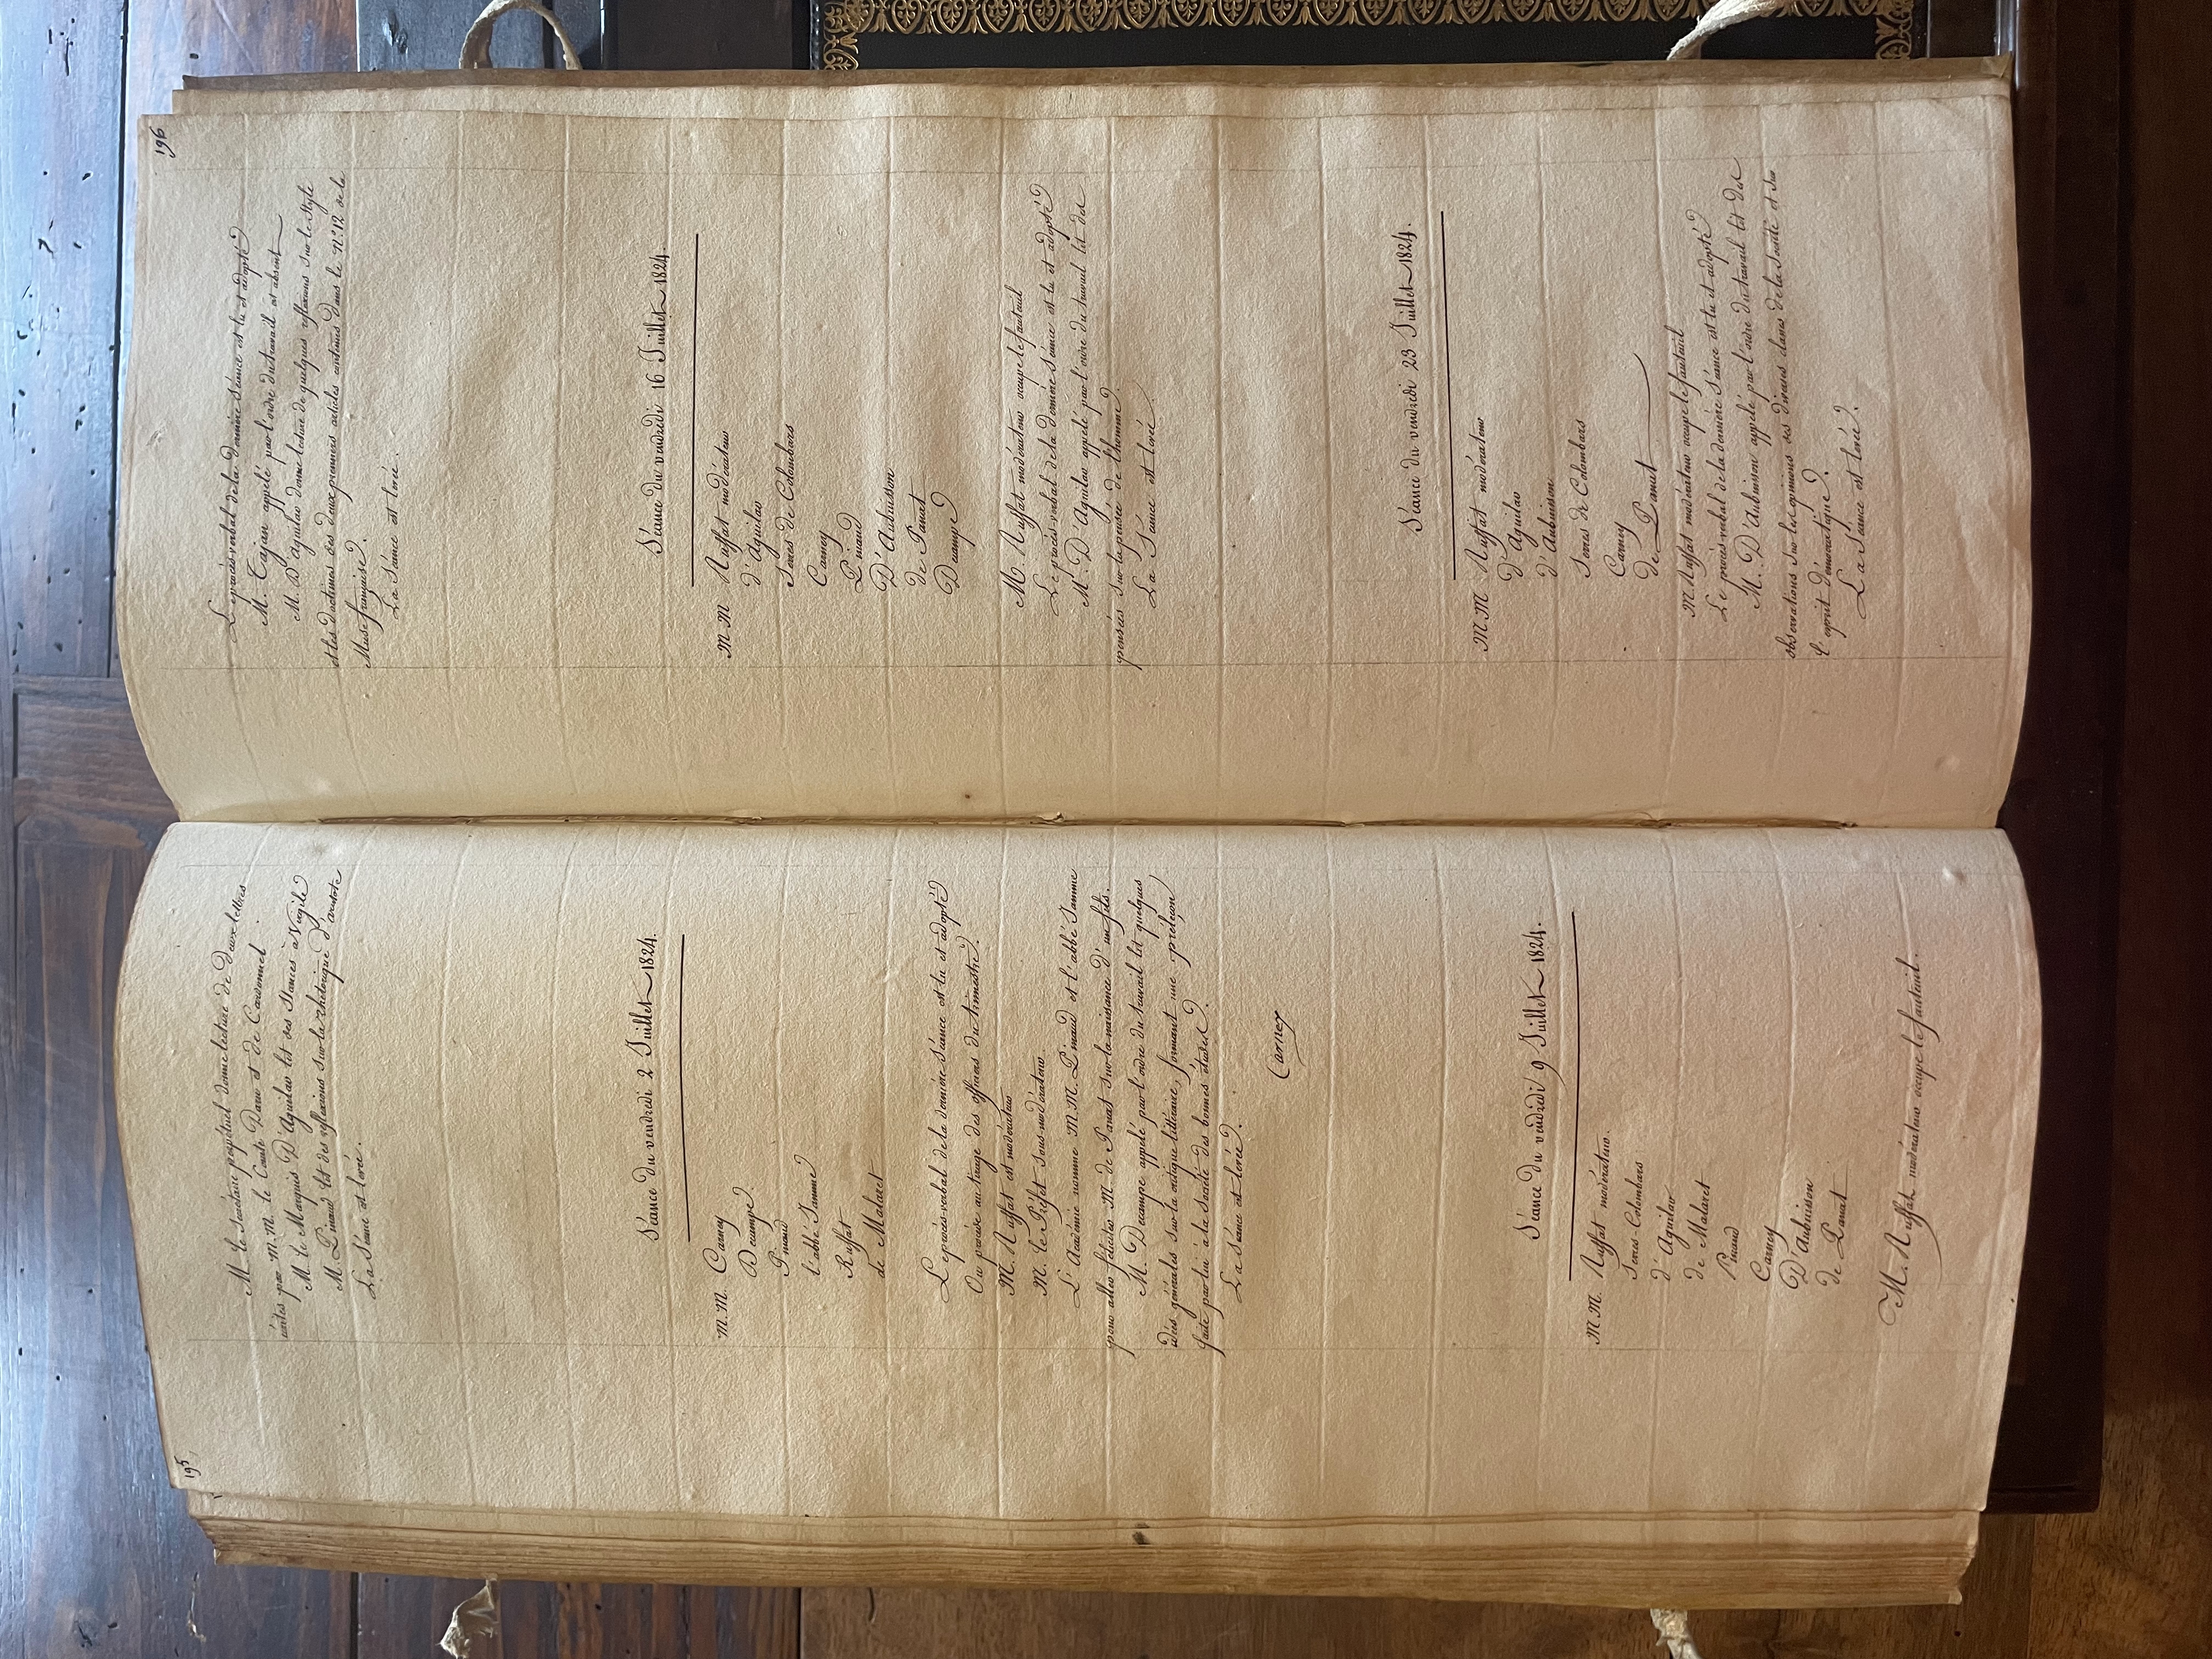 195
M. le Secrétaire perpétuel donne lecture de deux lettres
écrites par M.M. le Comte Daru et de Cardonnel.
M. le Marquis D'Aguilar lit des Stances à Virgile
M. Pinaud lit des réflexions sur la rhétorique d'aristote
La Séance est levée.
Séance du vendredi 2 Juillet 1824.
M.M. Carney
Decampe
Pinaud
l'abbé Jamme
Ruffat
de Malaret
Le procès-verbal de la dernière Séance est lu et adopté
On procède au tirage des officiers du trimestre.
M. Ruffat est modérateur
M. le Préfet sous-modérateur
L'Académie nomme M.M. Pinaud et l'abbé Jamme
pour aller féliciter M. de Panat sur la naissance d'un fils.
M. Decampe appelé par l'ordre du travail lit quelques
idées générales sur la critique littéraire, formant une préleçon
faite par lui à la Société des bonnes études.
La Séance est levée.
Carney
Séance du vendredi 9 Juillet 1824.
M.M. Ruffat modérateur.
Serres Colombars
d'Aguilar
de Malaret
Pinaud
Carney
D'Aubuisson
de Panat
M. Ruffat modérateur occupe le fauteuil.
196
Le procès-verbal de la dernière Séance est lu et adopté
M. Tajan appelé par l'ordre du travail est absent
M. D'Aguilar donne lecture de quelques réflexions sur le Style
et les doctrines des deux premiers articles contenus dans le N° 12 de la
Muse française.
La Séance est levée.
Séance du vendredi 16 Juillet 1824.
M M Ruffat modérateur
d'Aguilar
Serres de Colombars
Carney
Pinaud
D'Aubuisson
de Panat
Decampe
M. Ruffat modérateur occupe le fauteuil
Le procès-verbal de la dernière Séance est lu et adopté
M. D'Aguilar appelé par l'ordre du travail lit des
pensées sur la pensée de l'homme.
La Séance est levée.
Séance du vendredi 23 Juillet 1824.
M M Ruffat modérateur
d'Aguilar
d'Aubuisson
Serres de Colombars
Carney
de Panat
M. Ruffat modérateur occupe le fauteuil
Le procès-verbal de la dernière Séance est lu et adopté
M. D'Aubuisson appelé par l'ordre du travail lit des
observations sur les opinions des diverses classes de la Société et sur
l'esprit démocratique.
La Séance est levée.